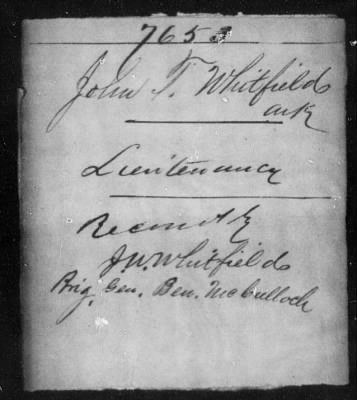 7653
John T. Whitfield
ark
Lieutenancy
Recom by
J.W. Whitfield
Brig. Gen. Ben. McCulloch